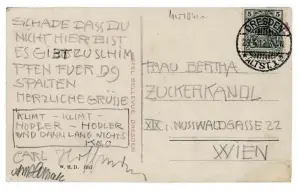 SCHADE DASS DU
NICHT HIER BIST
ES GIBT ZU SCHIM
PFEN FUER D9
SPALTEN
HERZLICHE GRÜSSE
KLIMT - KLIMT -
HODLER - HODLER
UND DANN LANG NICHTS
CARL
HOTEL BELLEVUE DRESDEN
DRESDEN
ALTST.
5
FRAU BERTHA
ZUCKERKANDL
XIX. NUSSWALDGASSE 22
WIEN